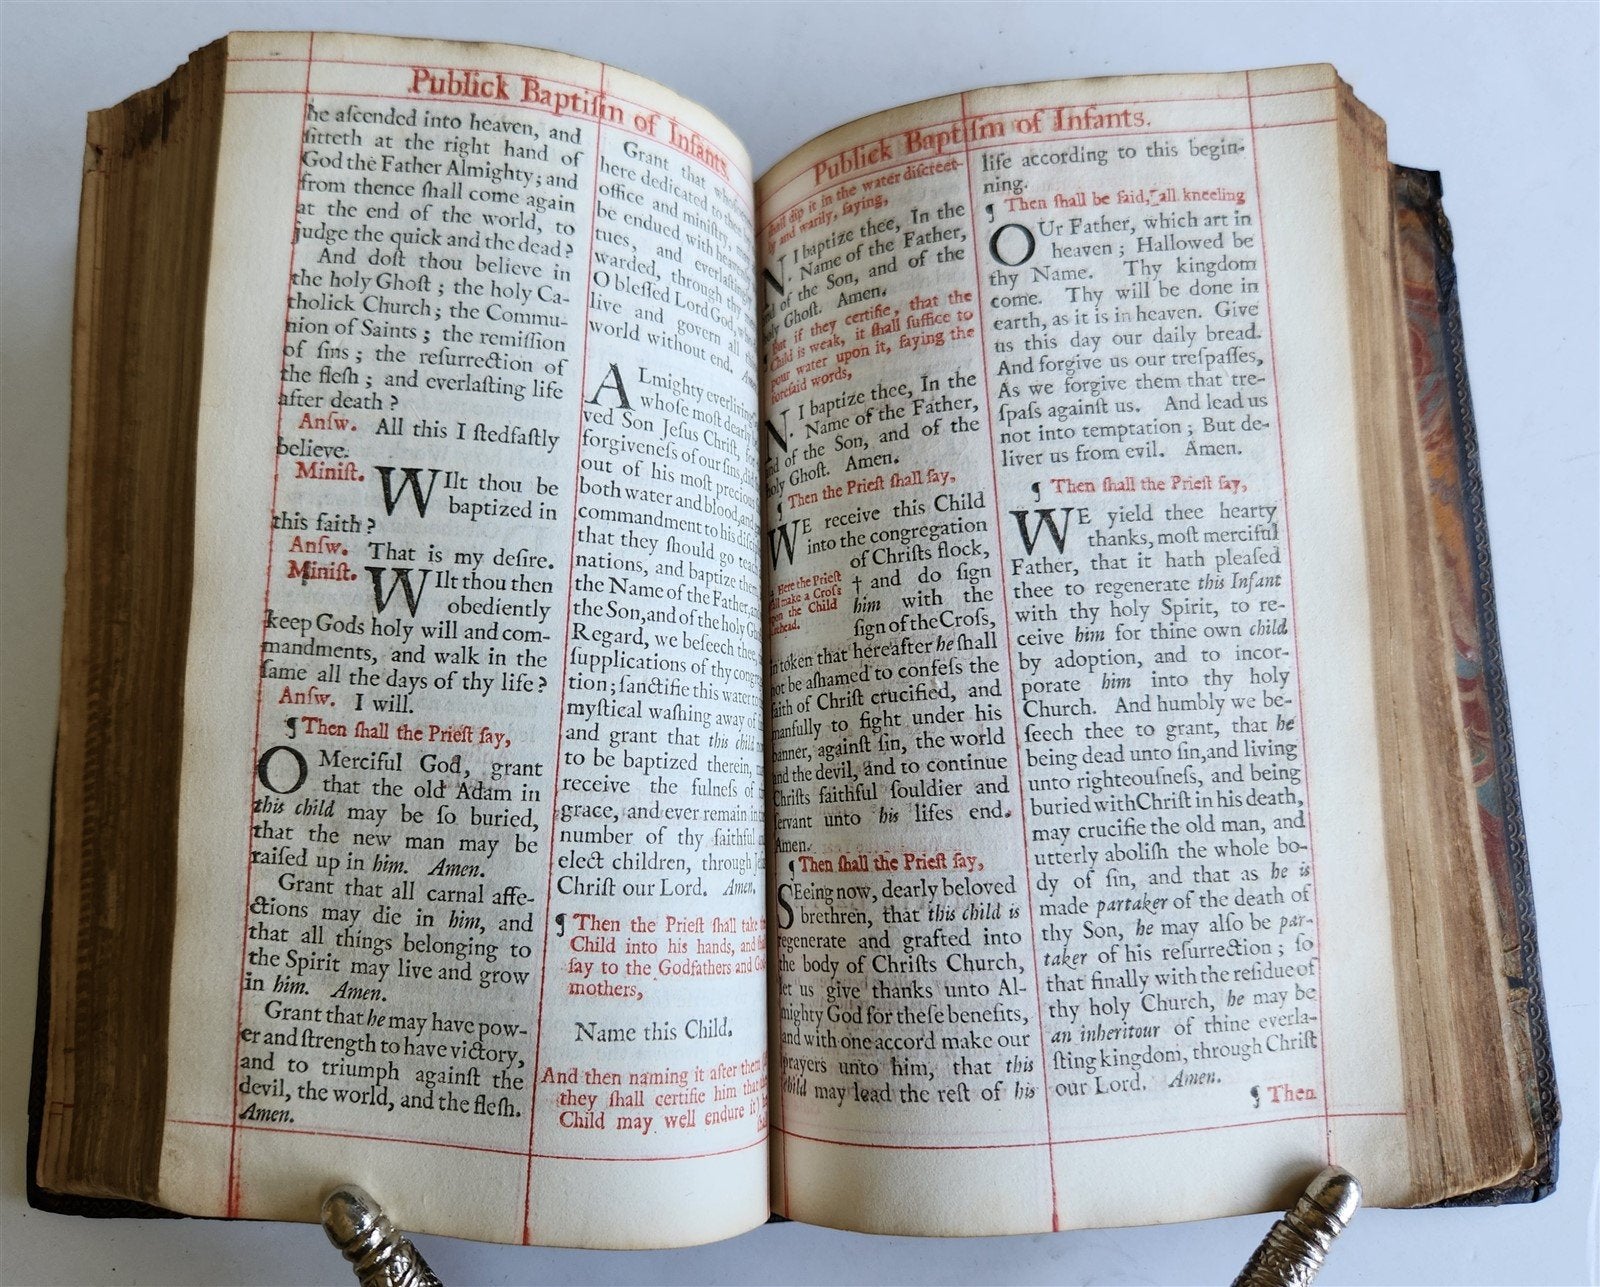 Publick Baptiſm of Infants.
he aſcended into heaven, and
ſitteth at the right hand of
God the Father Almighty; and
from thence ſhall come again
at the end of the world, to
judge the quick and the dead?
And doſt thou believe in
the holy Ghoſt; the holy Ca-
tholick Church; the Commu-
nion of Saints; the remiſſion
of ſins; the reſurrection of
the fleſh; and everlaſting life
after death?
Anſw. All this I ſtedfaſtly
believe.
Miniſt. WIlt thou be
baptized in
this faith?
Anſw. That is my deſire.
Miniſt. WIlt thou then
obediently
keep Gods holy will and com-
mandments, and walk in the
ſame all the days of thy life?
Anſw. I will.
¶ Then ſhall the Prieſt ſay,
O Merciful God, grant
that the old Adam in
this child may be ſo buried,
that the new man may be
raiſed up in him. Amen.
Grant that all carnal affe-
ctions may die in him, and
that all things belonging to
the Spirit may live and grow
in him. Amen.
Grant that he may have pow-
er and ſtrength to have victory,
and to triumph againſt the
devil, the world, and the fleſh.
Amen.
Grant that
here dedicated to
office and miniſtry,
be endued with
tues, and everlaſting
warded, through thy
O bleſſed Lord God,
live and govern all
world without end.
ALmighty everliving
whoſe moſt dearly
ved Son Jeſus Chriſt,
forgiveneſs of our ſins,
out of his moſt precious
both water and blood,
commandment to his
that they ſhould go teach
nations, and baptize them
the Name of the Father,
the Son, and of the holy
Regard, we beſeech thee,
ſupplications of thy congre
tion; ſanctifie this water to
myſtical waſhing away of
and grant that this child
to be baptized therein,
receive the fulneſs of
grace, and ever remain in
number of thy faithful
elect children, through
Chriſt our Lord. Amen.
¶ Then the Prieſt ſhall take
Child into his hands, and
ſay to the Godfathers and
mothers,
Name this Child.
And then naming it after them
they ſhall certifie him that
Child may well endure it)
Publick Baptiſm of Infants.
ſhall dip it in the water diſcreet-
ly and warily, ſaying,
N. I baptize thee, In the
Name of the Father,
of the Son, and of the
Ghoſt. Amen.
But if they certifie, that the
Child is weak, it ſhall ſuffice to
pour water upon it, ſaying the
foreſaid words,
N. I baptize thee, In the
Name of the Father,
and of the Son, and of the
holy Ghoſt. Amen.
¶ Then the Prieſt ſhall ſay,
WE receive this Child
into the congregation
of Chriſts flock,
† and do ſign
him with the
ſign of the Croſs,
Here the Prieſt
ſhall make a Croſs
upon the Child
in token that hereafter he ſhall
not be aſhamed to confeſs the
faith of Chriſt crucified, and
manfully to fight under his
banner, againſt ſin, the world
and the devil, and to continue
Chriſts faithful ſouldier and
ſervant unto his lifes end.
Amen.
¶ Then ſhall the Prieſt ſay,
SEeing now, dearly beloved
brethren, that this child is
regenerate and grafted into
the body of Chriſts Church,
let us give thanks unto Al-
mighty God for theſe benefits,
and with one accord make our
prayers unto him, that this
child may lead the reſt of his
life according to this begin-
ning.
¶ Then ſhall be ſaid, all kneeling
OUr Father, which art in
heaven; Hallowed be
thy Name. Thy kingdom
come. Thy will be done in
earth, as it is in heaven. Give
us this day our daily bread.
And forgive us our treſpaſſes,
As we forgive them that tre-
ſpaſs againſt us. And lead us
not into temptation; But de-
liver us from evil. Amen.
¶ Then ſhall the Prieſt ſay,
WE yield thee hearty
thanks, moſt merciful
Father, that it hath pleaſed
thee to regenerate this Infant
with thy holy Spirit, to re-
ceive him for thine own child
by adoption, and to incor-
porate him into thy holy
Church. And humbly we be-
ſeech thee to grant, that he
being dead unto ſin, and living
unto righteouſneſs, and being
buried with Chriſt in his death,
may crucifie the old man, and
utterly aboliſh the whole bo-
dy of ſin, and that as he is
made partaker of the death of
thy Son, he may alſo be par-
taker of his reſurrection; ſo
that finally with the reſidue of
thy holy Church, he may be
an inheritour of thine everla-
ſting kingdom, through Chriſt
our Lord. Amen.
¶ Then